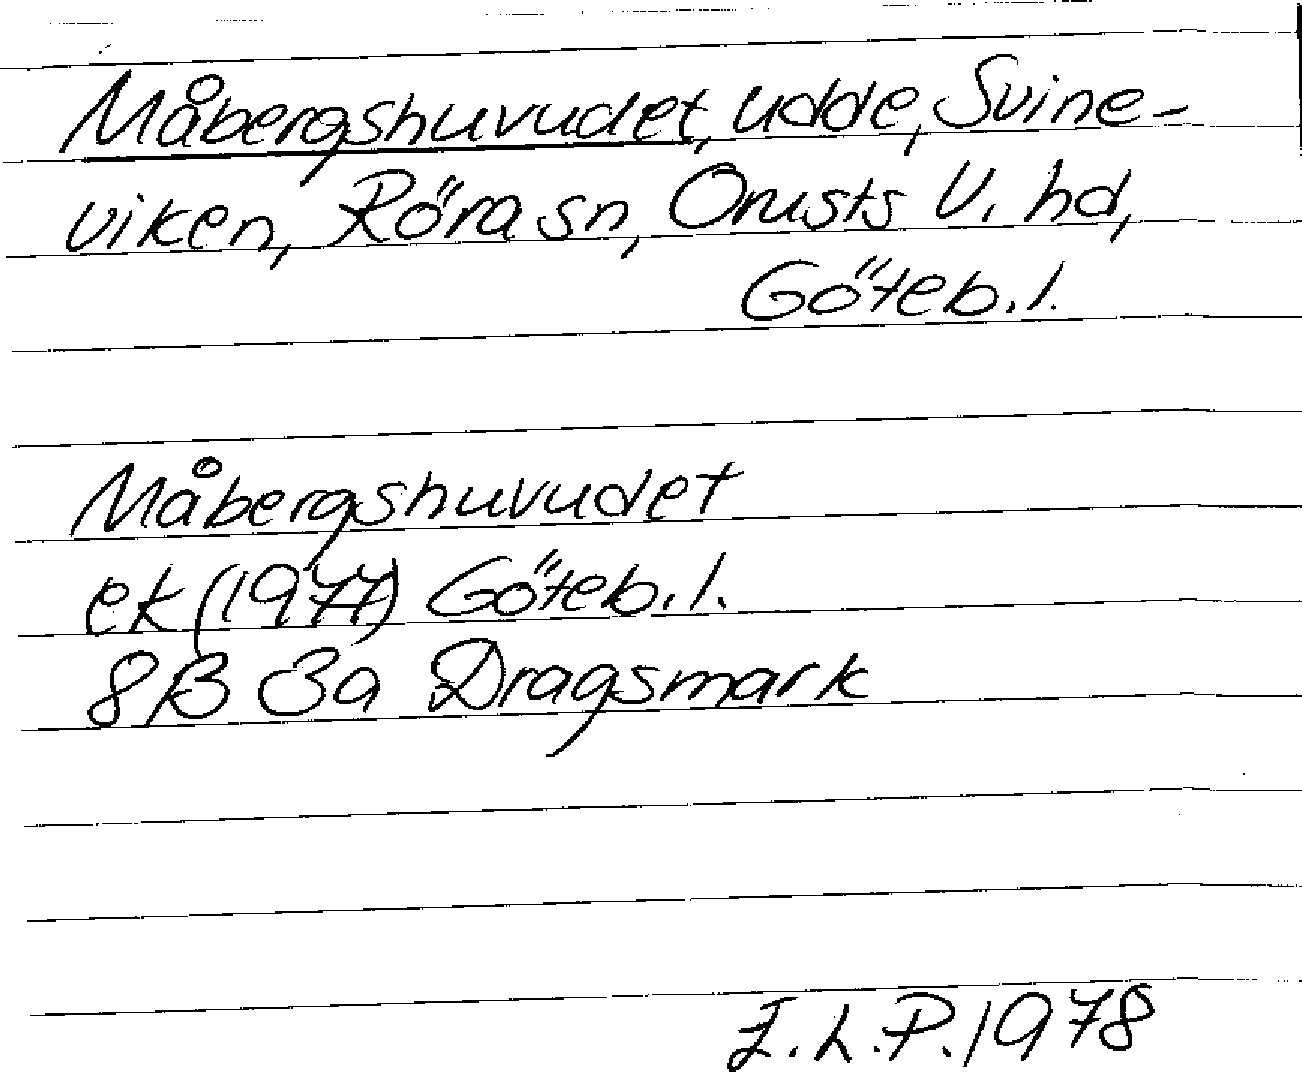 Måbergshuvudet, udde, Svine-
viken, Röra sn, Orusts V. hd,
Göteb.l.
Måbergshuvudet
ek (1977) Göteb.l.
8B 3a Dragsmark
I.L.P. 1978